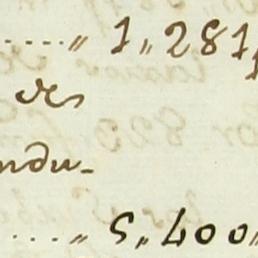 .....„ 1„281„
de
ndu-
....„ 5„400„